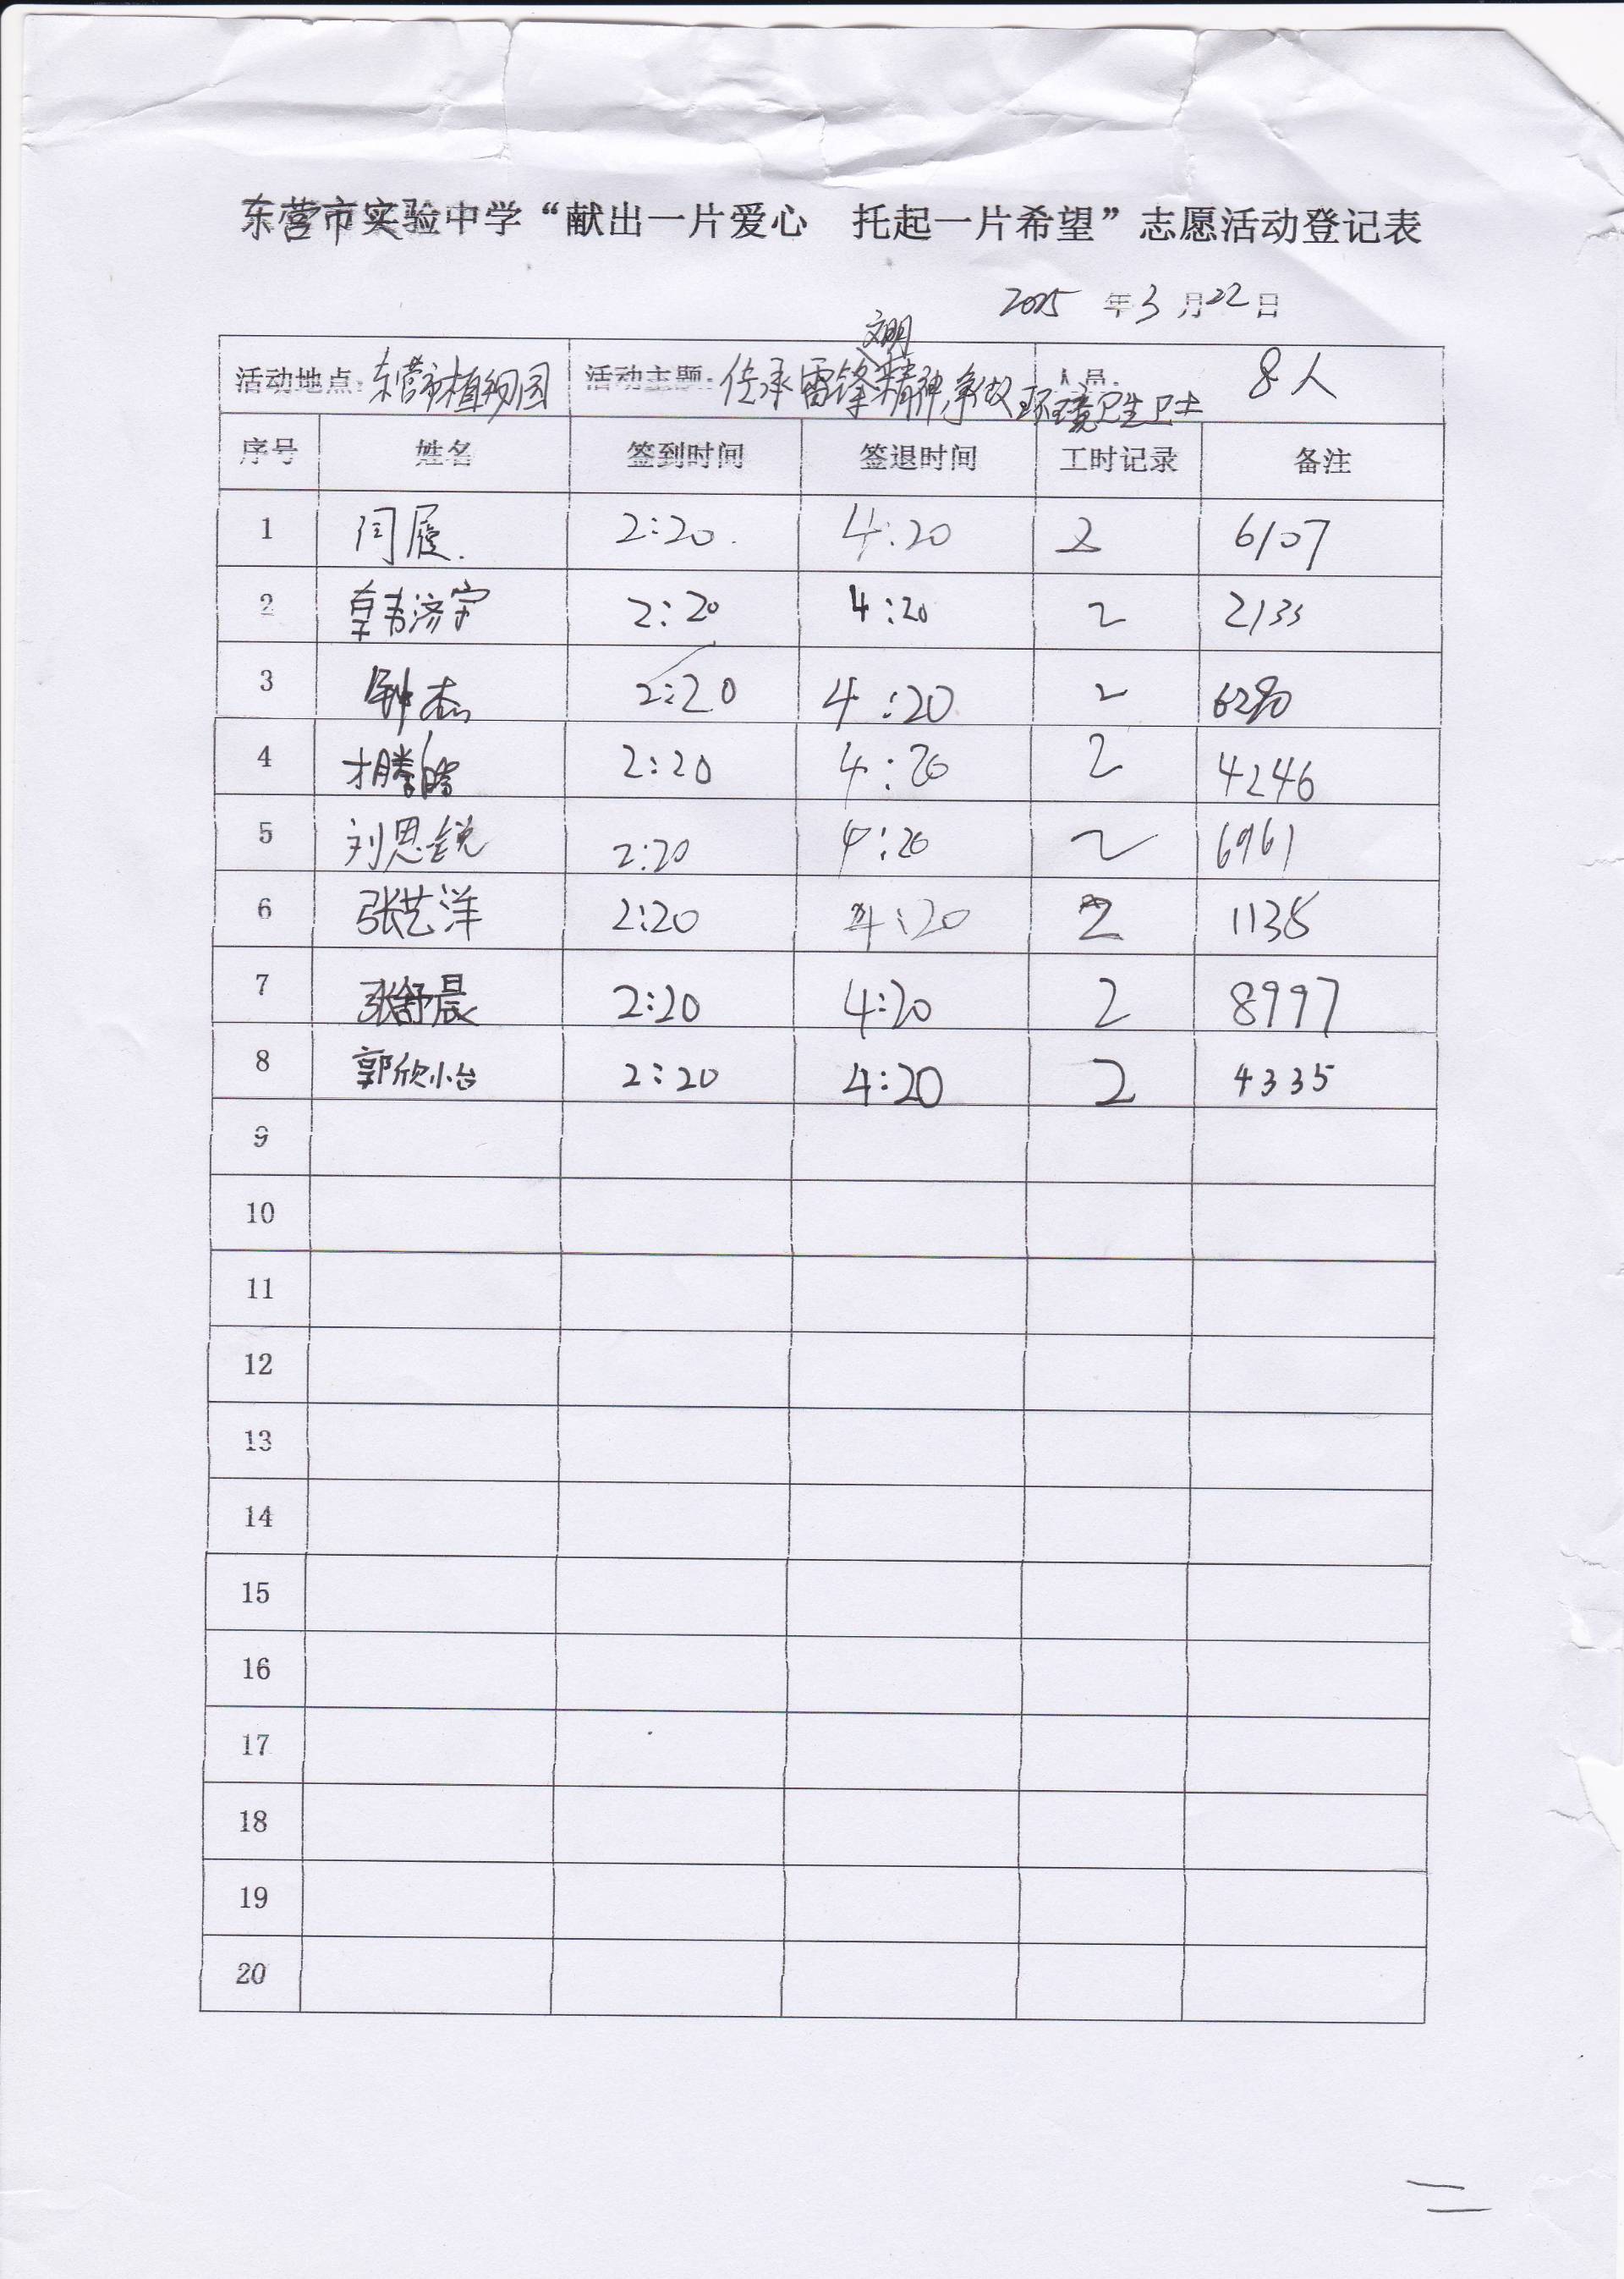 东营市实验中学“献出一片爱心 托起一片希望”志愿活动登记表
2025 年 3 月 22 日
文明
活动地点：东营市植物园 活动主题：传承雷锋精神，争做环境卫生卫士 人员： 8人
序号 姓名 签到时间 签退时间 工时记录 备注
1 闫履 2:20 4:20 2 6107
2 韩济宇 2:20 4:20 2 2133
3 钟杰 2:20 4:20 2 6280
4 2:20 4:20 2 4246
5 刘恩锐 2:20 4:20 2 6961
6 张艺洋 2:20 4:20 2 1135
7 张舒晨 2:20 4:20 2 8997
8 郭欣怡 2:20 4:20 2 4335
9
10
11
12
13
14
15
16
17
18
19
20
二